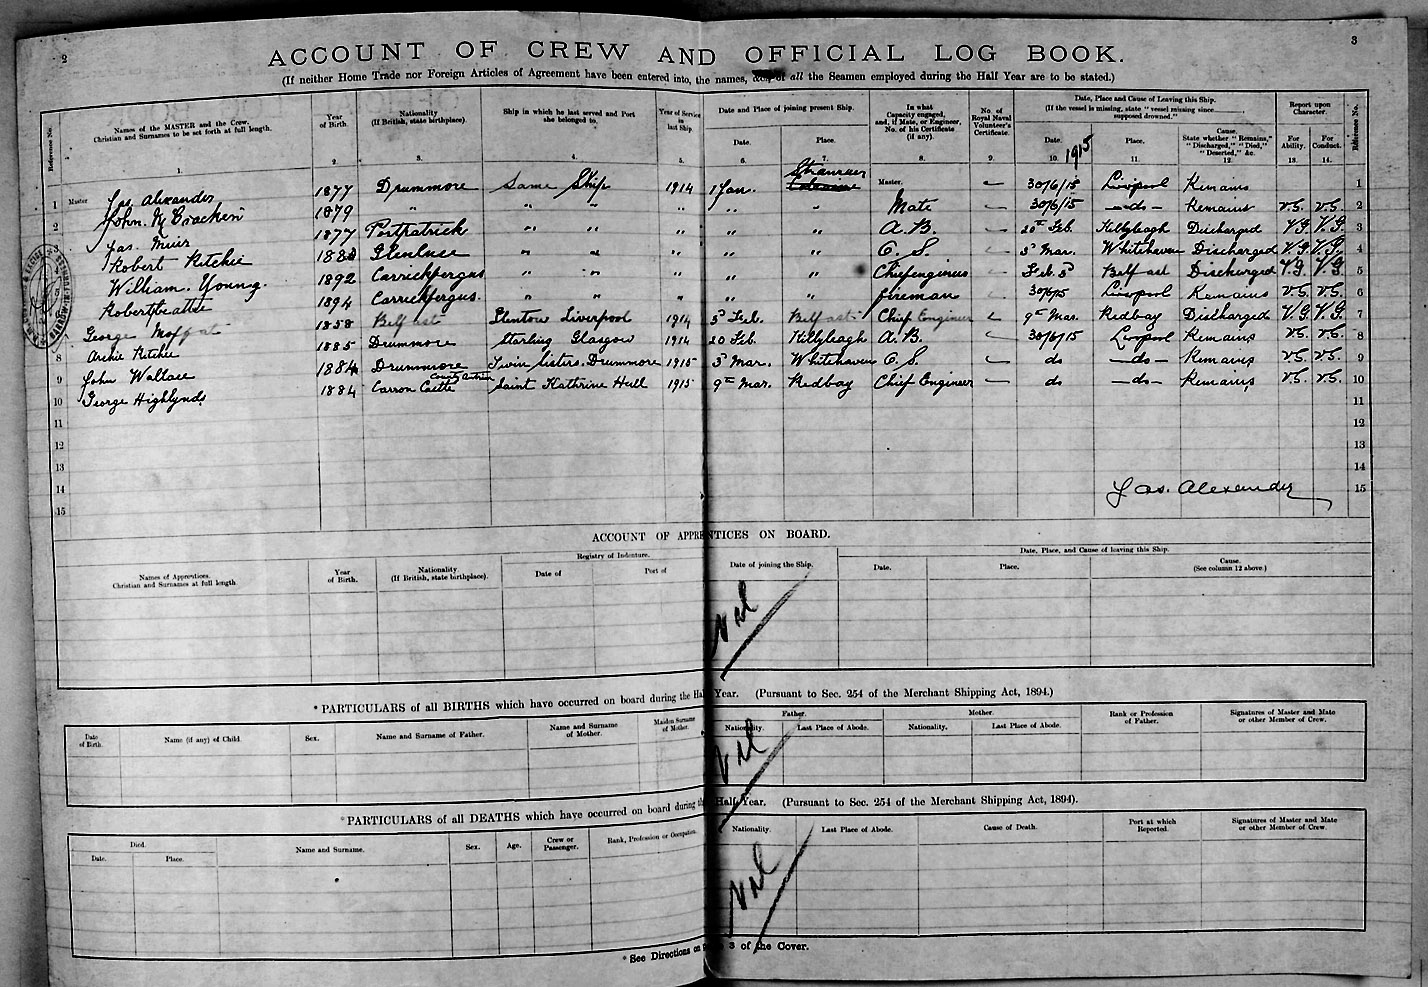 2
3
ACCOUNT OF CREW AND OFFICIAL LOG BOOK.
(If neither Home Trade nor Foreign Articles of Agreement have been entered into, the names, &c., of all the Seamen employed during the Half Year are to be stated.)
Reference No. Names of the MASTER and the Crew. Christian and Surnames to be set forth at full length. Year of Birth. Nationality (If British, state birthplace). Ship in which he last served and Port she belonged to. Year of Service in last Ship. Date and Place of joining present Ship. Date. Place. In what Capacity engaged, and, if Mate, or Engineer, No. of his Certificate (if any). No. of Royal Naval Volunteer's Certificate. Date, Place and Cause of Leaving this Ship. (If the vessel is missing, state "vessel missing since supposed drowned." Date. Place. Cause. State whether "Remains," "Discharged," "Died," "Deserted," &c. Report upon Character. For Ability. For Conduct. Reference No.
1. 2. 3. 4. 5. 6. 7. 8. 9. 10. 1915 11. 12. 13. 14.
Stranraer
1 Master Jas. Alexander 1877 Drummore Same Ship 1914 1 Jan. Master. 30/6/15 Liverpool Remains 1
2 John. McCracken 1879 " " " " " " Mate 30/6/15 -do- Remains V.G. V.G. 2
3 Jas. Muir 1877 Portpatrick " " " " " A.B. 20th Feb. Killyleagh Discharged V.G. V.G. 3
Robert Ritchie 1883 Glenluce " " " " " O.S. 5th Mar. Whitehaven Discharged V.G. V.G. 4
William. Young. 1892 Carrickfergus " " " " " Chief engineer Feb. 5 Belfast Discharged V.G. V.G. 5
Robert Beattie 1894 Carrickfergus. " " " " " fireman 30/6/15 Liverpool Remains V.G. V.G. 6
George Moffat 1858 Belfast Liverpool 1914 5th Feb. Belfast Chief Engineer 9th Mar. Redbay Discharged V.G. V.G. 7
8 Archie Ritchie 1885 Drummore Starling Glasgow 1914 20 Feb. Killyleagh A.B. 30/6/15 Liverpool Remains V.G. V.G. 8
9 John Wallace 1884 Drummore Twin Sisters. Drummore 1915 5th Mar. Whitehaven O.S. do -do- Remains V.G. V.G. 9
10 George Highlynds 1884 Carron Castle County Antrim Saint Kathrine Hull 1915 9th Mar. Redbay Chief Engineer do -do- Remains V.G. V.G. 10
11 11
12 12
13 13
14 14
15 Jas. Alexander 15
ACCOUNT OF APPRENTICES ON BOARD.
Names of Apprentices. Christian and Surnames at full length. Year of Birth. Nationality (If British, state birthplace). Registry of Indenture. Date of Port of Date of joining the Ship. Date, Place, and Cause of leaving this Ship. Date. Place. Cause. (See column 12 above.)
Nil
*PARTICULARS of all BIRTHS which have occurred on board during the Half Year. (Pursuant to Sec. 254 of the Merchant Shipping Act, 1894.)
Date of Birth. Name (if any) of Child. Sex. Name and Surname of Father. Name and Surname of Mother. Maiden Surname of Mother. Father. Nationality. Last Place of Abode. Mother. Nationality. Last Place of Abode. Rank or Profession of Father. Signatures of Master and Mate or other Member of Crew.
Nil
*PARTICULARS of all DEATHS which have occurred on board during the Half Year. (Pursuant to Sec. 254 of the Merchant Shipping Act, 1894).
Died. Date. Place. Name and Surname. Sex. Age. Crew or Passenger. Rank, Profession or Occupation. Nationality. Last Place of Abode. Cause of Death. Port at which Reported. Signatures of Master and Mate or other Member of Crew.
Nil
*See Directions on 3 of the Cover.